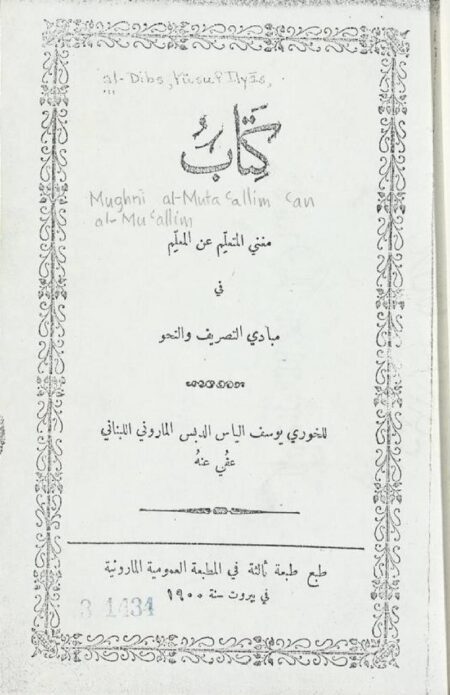 al-Dibs, Yūsuf Ilyās,
كِتَابُ
Mughnī al-Mutaʿallim ʿan
al-Muʿallim
مغني المتعلّم عن المعلّم
في
مبادي التصريف والنحو
للخوري يوسف الياس الدبس الماروني اللبناني
عُفي عنهُ
طبع طبعة ثالثة في المطبعة العمومية المارونية
في بيروت سنة ١٩٠٠
31434